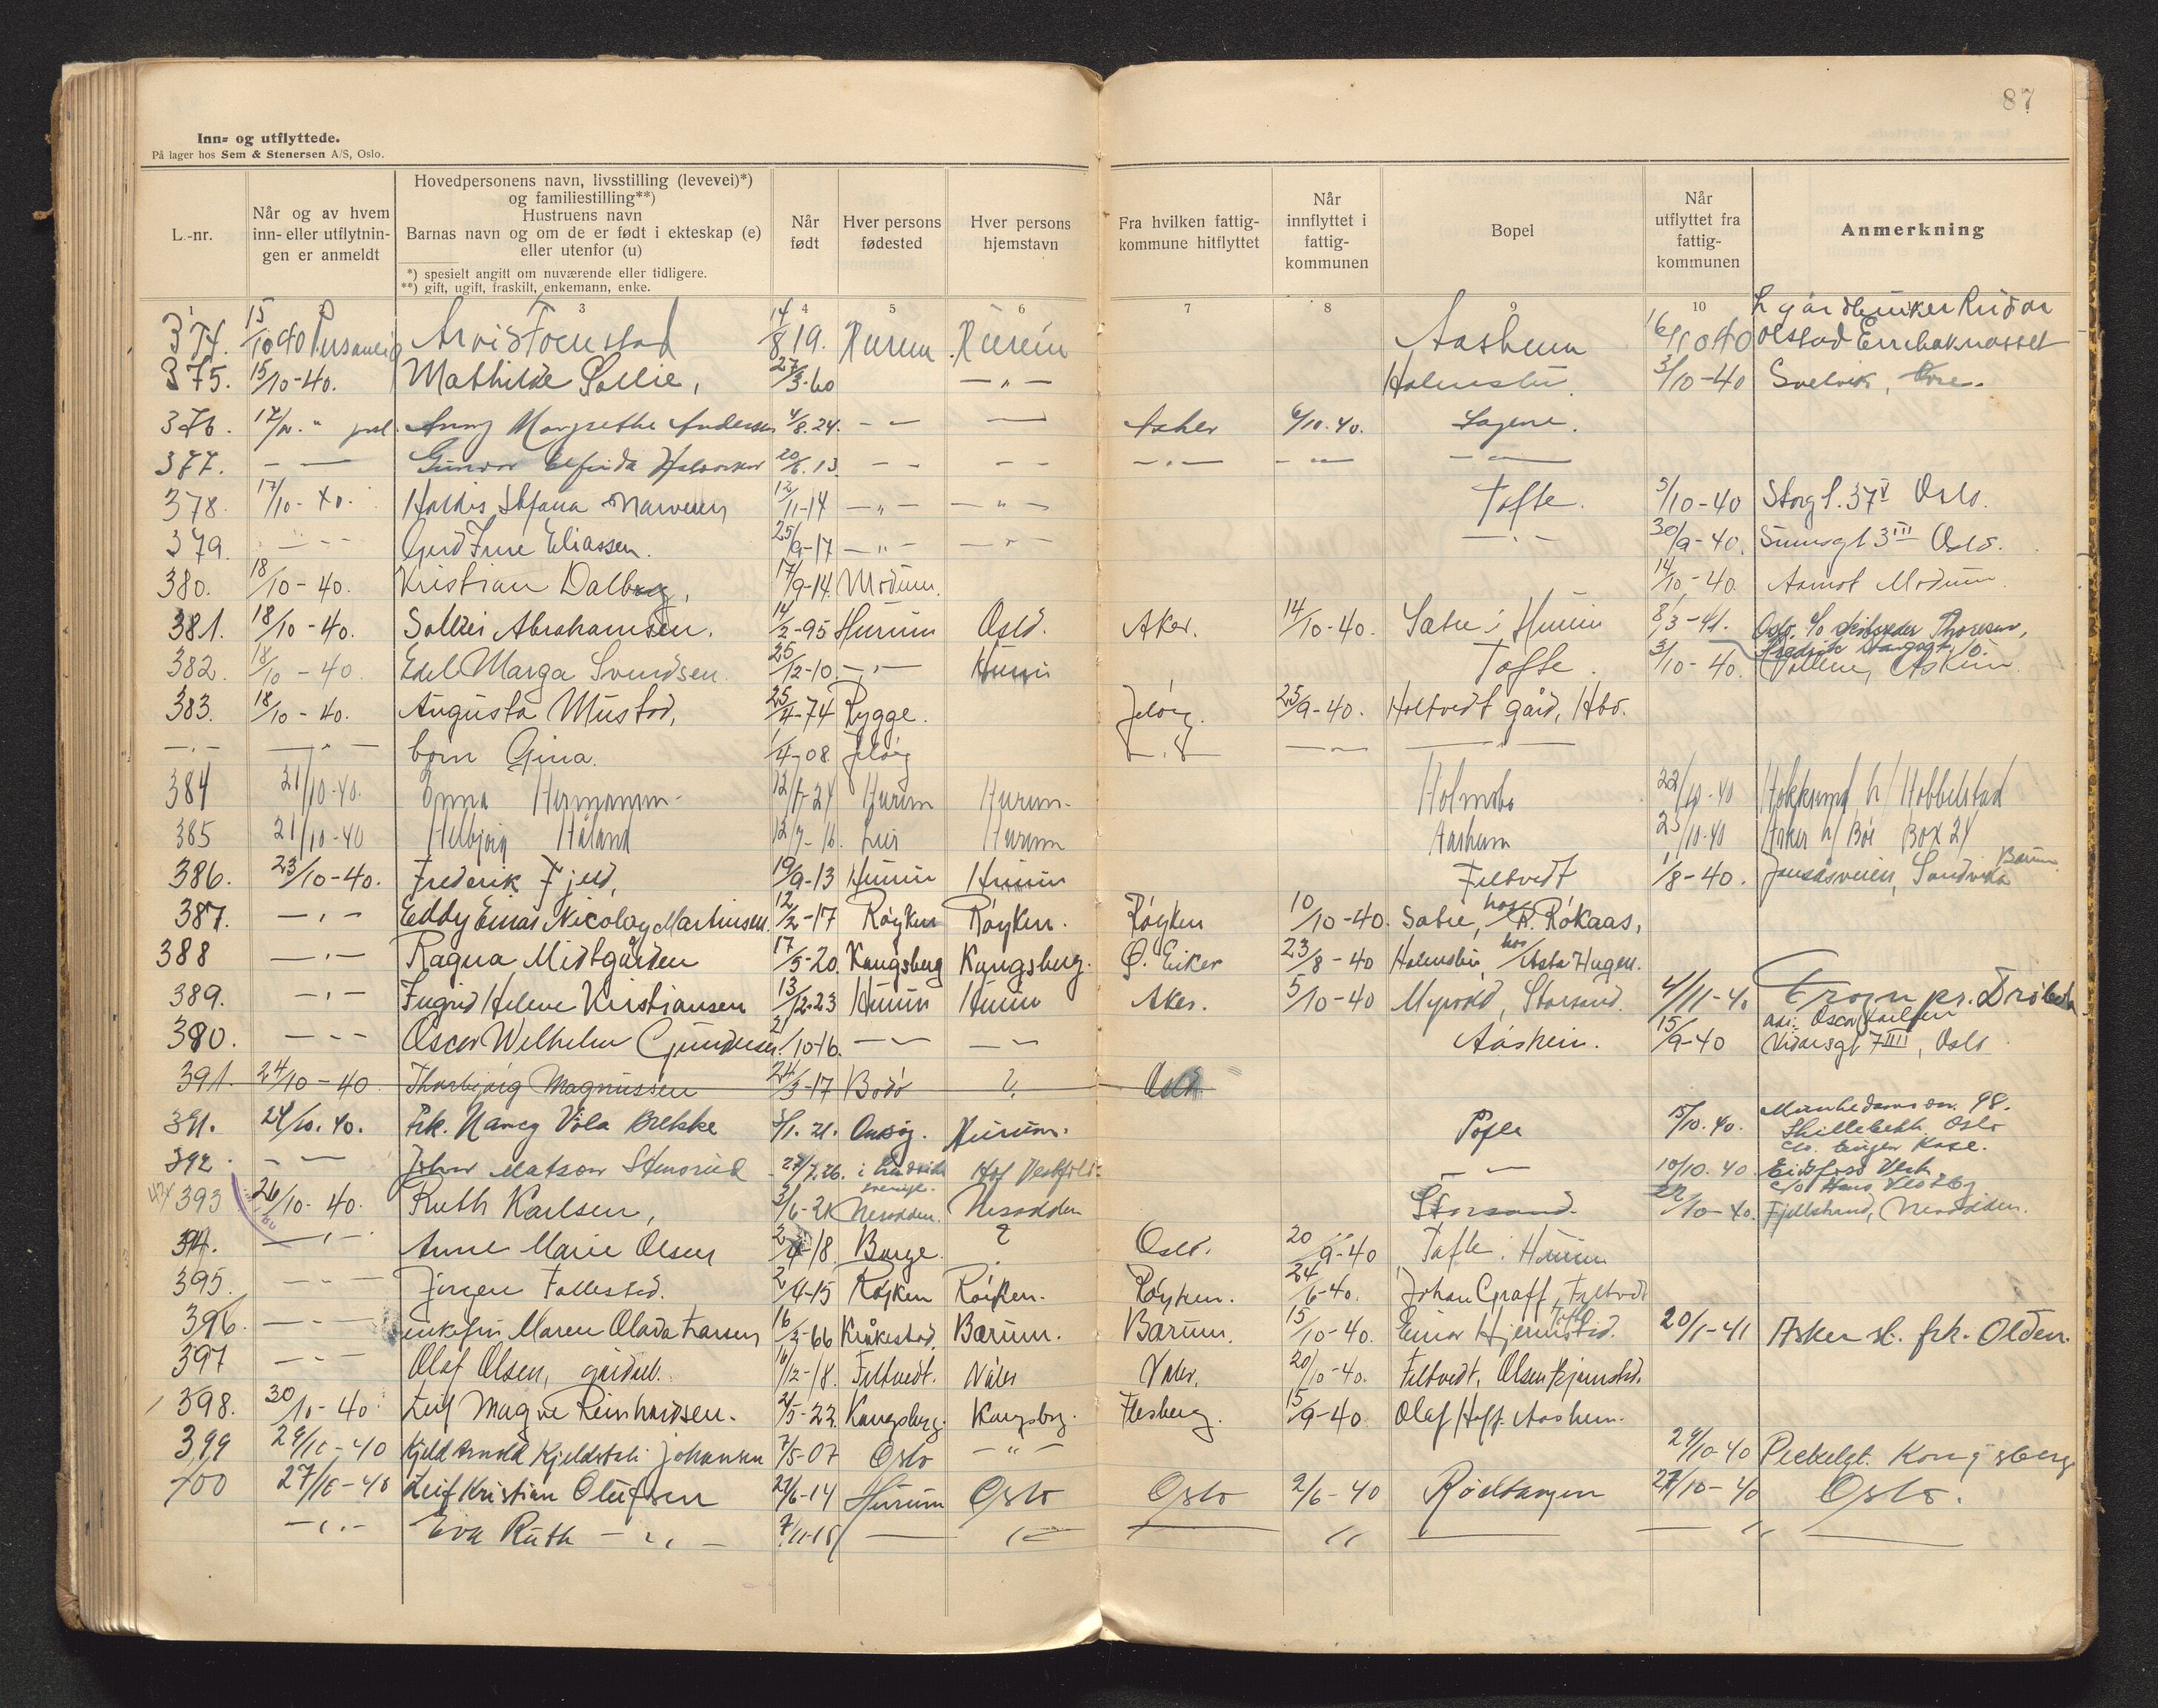 87
Inn- og utflyttede.
På lager hos Sem & Stenersen A/S, Oslo.
L.-nr.
Når og av hvem inn- eller utflytnin-gen er anmeldt
Hovedpersonens navn, livsstilling (levevei)*)
og familiestilling**)
Hustruens navn
Barnas navn og om de er født i ekteskap (e)
eller utenfor (u)
*) spesielt angitt om nuværende eller tidligere.
**) gift, ugift, fraskilt, enkemann, enke.
Når født
Hver persons fødested
Hver persons hjemstavn
Fra hvilken fattig-kommune hitflyttet
Når innflyttet i fattig-kommunen
Bopel
Når utflyttet fra fattig-kommunen
Anmerkning
1 2 3 4 5 6 7 8 9 10
374. 15/10 40 14/8 19. Hurum Hurum Aasheim 16/10 40
375. 15/10-40. Mathilde Sollie, 27/3-60 — " — Holmsbu 3/10-40 Svelvik,
376. 17/10. " Anny Margrethe Andersen 4/8. 24. - - — Asker 6/10. 40. Sagene.
377. - — Gunvor 20/6. 13 - - - - -"- - — - —
378. 17/10-40. Haldis 12/11-14 — " — — " — Tofte. 5/10-40 Storgt. 37 V Oslo.
379. — - - Gerd Irene Eliassen. 25/9-17 — " — — " — — " — 30/9-40. 3 III Oslo.
380. 18/10-40. Kristian Dalberg, 17/9-14. Modum. 14/10-40. Aamot Modum.
381. 18/10-40. Solvei Abrahamsen. 14/2-95 Hurum Oslo. Aker. 14/10-40. Sætre i Hurum 8/3-41. Oslo. c/o Thoresen,
382. 18/10-40 Edel Marga Svendsen. 25/12-10. — " — Hurum Tofte. 3/10-40. Askim.
383. 18/10-40. Augusta Mustad, 25/4-74 Rygge. Jeløy. 25/9-40. Holtvedt gård, Hbo.
— " — — " — barn Gina. 1/4-08 Jeløy — " — — " — — " —
384 21/10-40. Hermansen 12/7-24 Hurum Hurum. Holmsbo 22/10-40 Hokksund h/ Hobbelstad
385 21/10-40 Herbjørg Håland 12/7-16. Lier Hurum Aasheim 23/10-40 Asker h/ Bøe Box 24
386. 23/10-40. Frederik Fjeld, 19/9-13 Hurum Hurum Filtvedt 1/8-40. Jonsåsveien, Sandvika Bærum
387. — " — Eddy Einar Nicolay Martinsen. 12/2-17 Røyken Røyken. Røyken 10/10-40. Sætre, hos R. Rökaas,
388 — " — Ragna Midtgården 17/5-20. Kongsberg Kongsberg. Ø. Eiker 23/8-40 Holmsbu, hos Asta Hagen.
389. - " - Ingrid Helene Kristiansen 13/12-23 Hurum Hurum Aker. 5/10-40 Myrvold, Storsand. 4/11-40 Frogn pr. Drøbak
adr. Oscar Karlsen
380. — - - Oscar Wilhelm Gundersen. 21/10-16. — " — — " — Aasheim. 15/9-40 Vidarsgt 7 III, Oslo
391. 24/10-40. Thorbjørg Magnussen 24/3-17 Bodø ? Oslo
391. 24/10. 40. Frk. Nancy Viola Brekke 3/1. 21. Onsøy. Hurum. Tofte 15/10. 40. 98.
Skillebekk. Oslo
c/o
392. - — Johan 27/7. 26. Hof Vestfold. - — 10/10. 40 Eidsfoss Verk.
c/o Hans
393 26/10-40. Ruth Karlsen, 3/6-21 Nesodden. Nesodden Storsand. 22/10-40. Fjellstrand, Nesodden.
394. — " — Anne Marie Olsen 2/4-18. Borge. ? Oslo. 20/9-40 Tofte. Hurum
395. — - — Jörgen Follestad. 2/4-15 Røyken Røyken. Røyken. 24/6-40. Johan Graff, Filtvedt
396. — - — enkefru Maren Olava Larsen 16/2-66 Kråkestad. Bærum. Bærum. 15/10-40. Einar Hjermstad. Tofte 20/1-41 Asker st. frk. Olden.
397 — - — Olaf Olsen, 10/12-18. Filtvedt. Våler Våler. 20/10-40. Filtvedt. Olsen
398. 30/10-40. Leif Magne Reinhardsen. 21/5-22. Kongsberg. Kongsberg. Flesberg. 15/9-40 Olaf Hoff. Aasheim.
399 29/10-40 Kjeld Arnold Johansen 7/5-07 Oslo — " — 29/10-40 Kongsberg
400 27/10-40 Leif Kristian Olufsen 22/6-14 Hurum Oslo Oslo 2/6-40 Rødtangen 27/10-40 Oslo.
— " — Eva Ruth — " — 7/11-15 — — " — — " — — " —